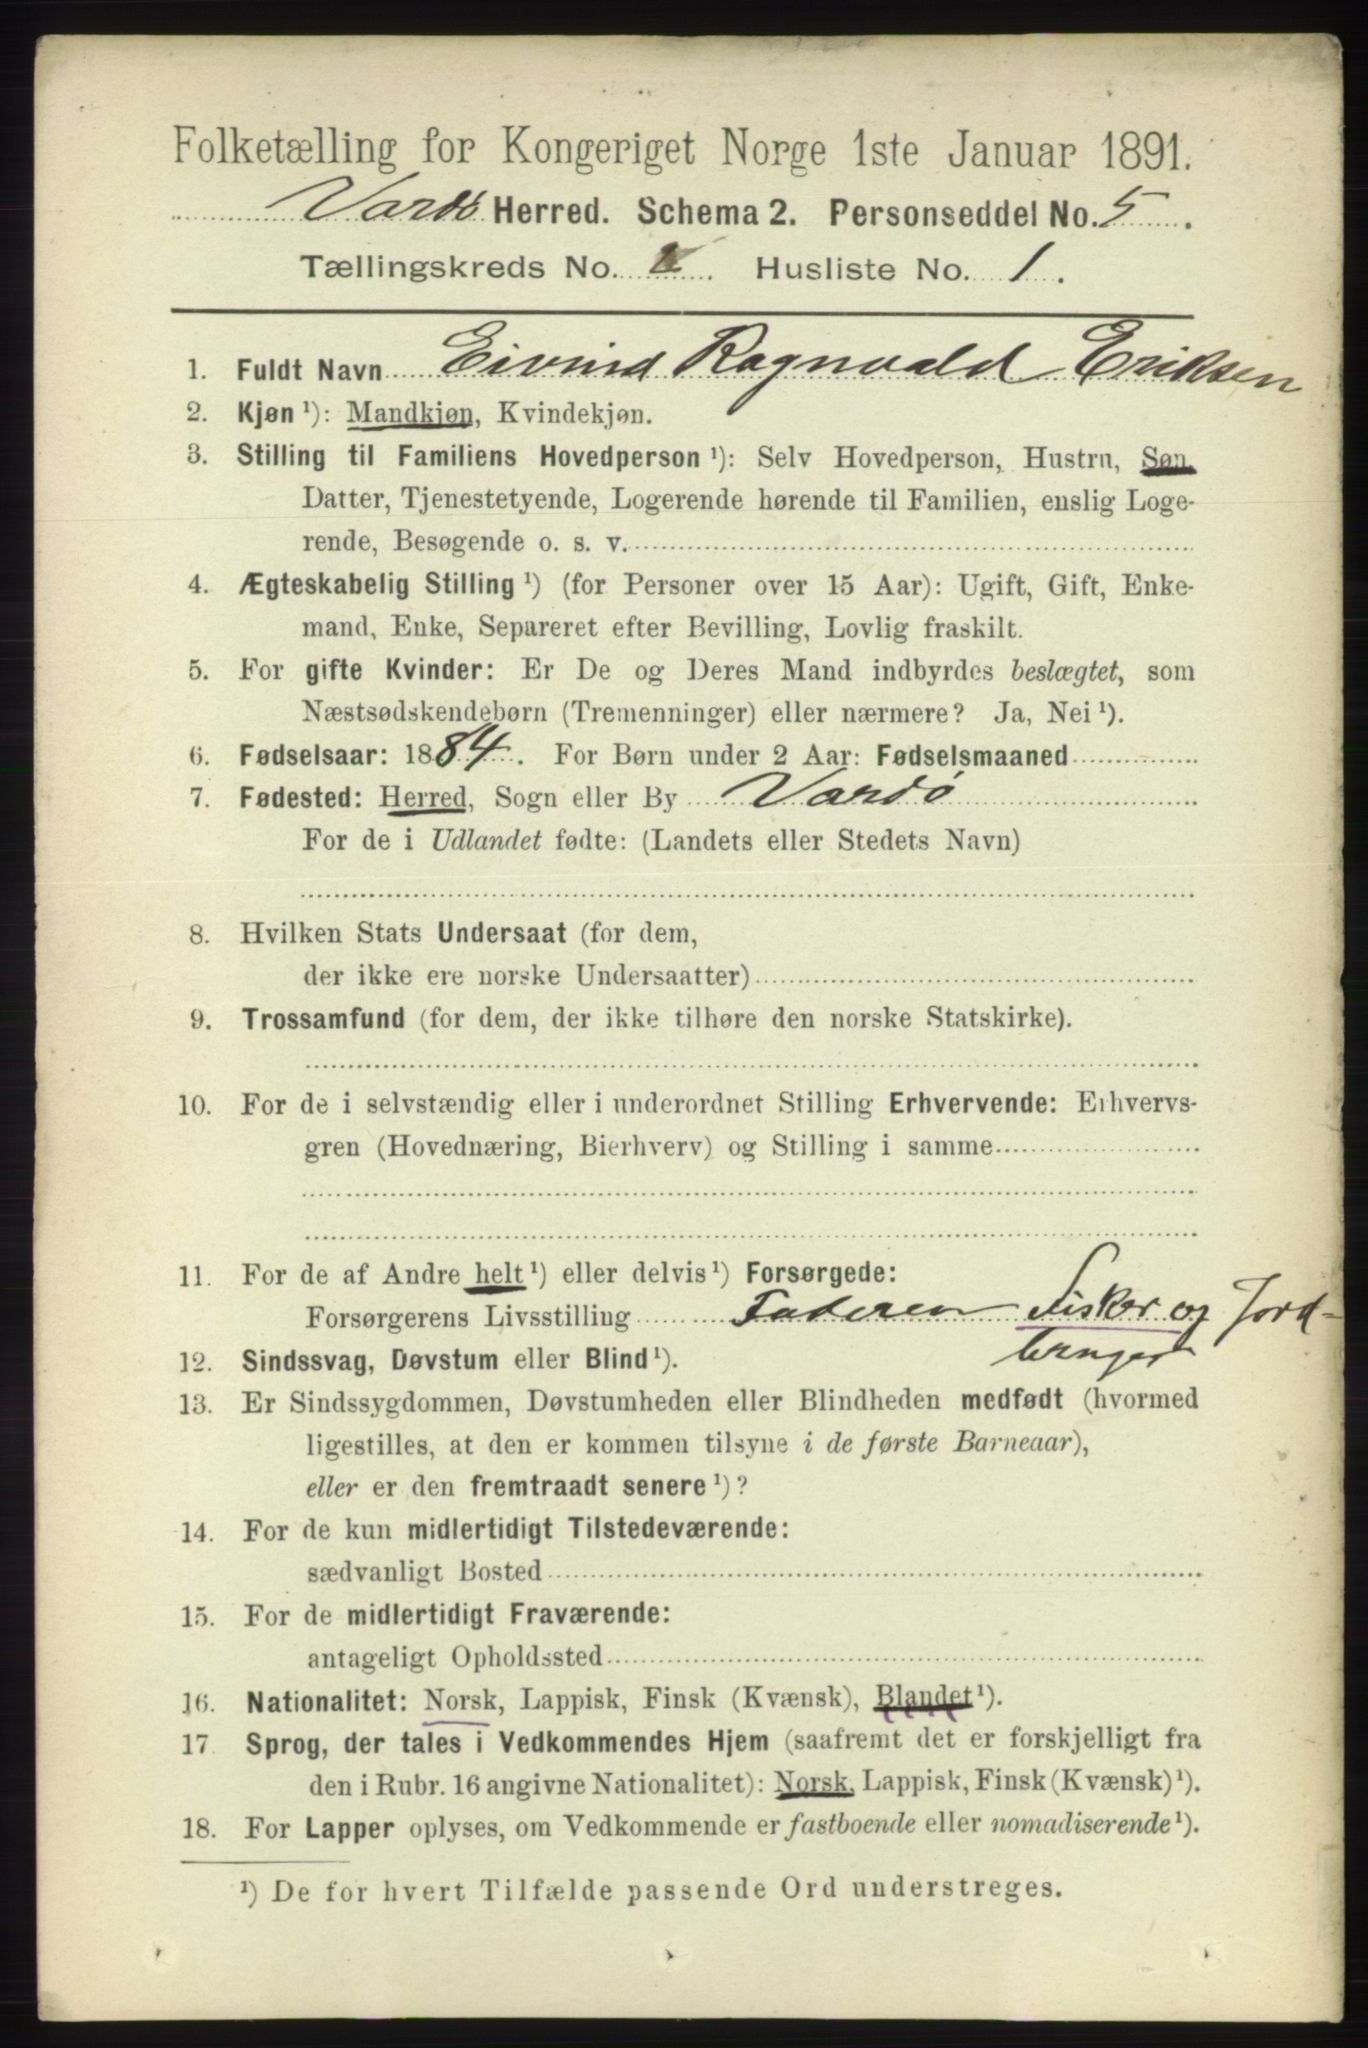 Folketælling for Kongeriget Norge 1ste Januar 1891.
Vardø Herred. Schema 2. Personseddel No. 5.
Tællingskreds No. . Husliste No. 1.
1. Fuldt Navn Eivind Ragnvald Eriksen
2. Kjøn ¹): Mandkjøn, Kvindekjøn.
3. Stilling til Familiens Hovedperson ¹): Selv Hovedperson, Hustru, Søn,
Datter, Tjenestetyende, Logerende hørende til Familien, enslig Loge-
rende, Besøgende o. s. v.
4. Ægteskabelig Stilling ¹) (for Personer over 15 Aar): Ugift, Gift, Enke-
mand, Enke, Separeret efter Bevilling, Lovlig fraskilt.
5. For gifte Kvinder: Er De og Deres Mand indbyrdes beslægtet, som
Næstsødskendebørn (Tremenninger) eller nærmere? Ja, Nei ¹).
6. Fødselsaar: 1884. For Børn under 2 Aar: Fødselsmaaned
7. Fødested: Herred, Sogn eller By Vardø
For de i Udlandet fødte: (Landets eller Stedets Navn)
8. Hvilken Stats Undersaat (for dem,
der ikke ere norske Undersaatter)
9. Trossamfund (for dem, der ikke tilhøre den norske Statskirke).
10. For de i selvstændig eller i underordnet Stilling Erhvervende: Erhvervs-
gren (Hovednæring, Bierhverv) og Stilling i samme
11. For de af Andre helt ¹) eller delvis ¹) Forsørgede:
Forsørgerens Livsstilling Faderen Fisker og Jord-
bruger
12. Sindssvag, Døvstum eller Blind ¹).
13. Er Sindssygdommen, Døvstumheden eller Blindheden medfødt (hvormed
ligestilles, at den er kommen tilsyne i de første Barneaar),
eller er den fremtraadt senere ¹)?
14. For de kun midlertidigt Tilstedeværende:
sædvanligt Bosted
15. For de midlertidigt Fraværende:
antageligt Opholdssted
16. Nationalitet: Norsk, Lappisk, Finsk (Kvænsk), Blandet ¹).
17. Sprog, der tales i Vedkommendes Hjem (saafremt det er forskjelligt fra
den i Rubr. 16 angivne Nationalitet): Norsk, Lappisk, Finsk (Kvænsk) ¹).
18. For Lapper oplyses, om Vedkommende er fastboende eller nomadiserende ¹).
¹) De for hvert Tilfælde passende Ord understreges.